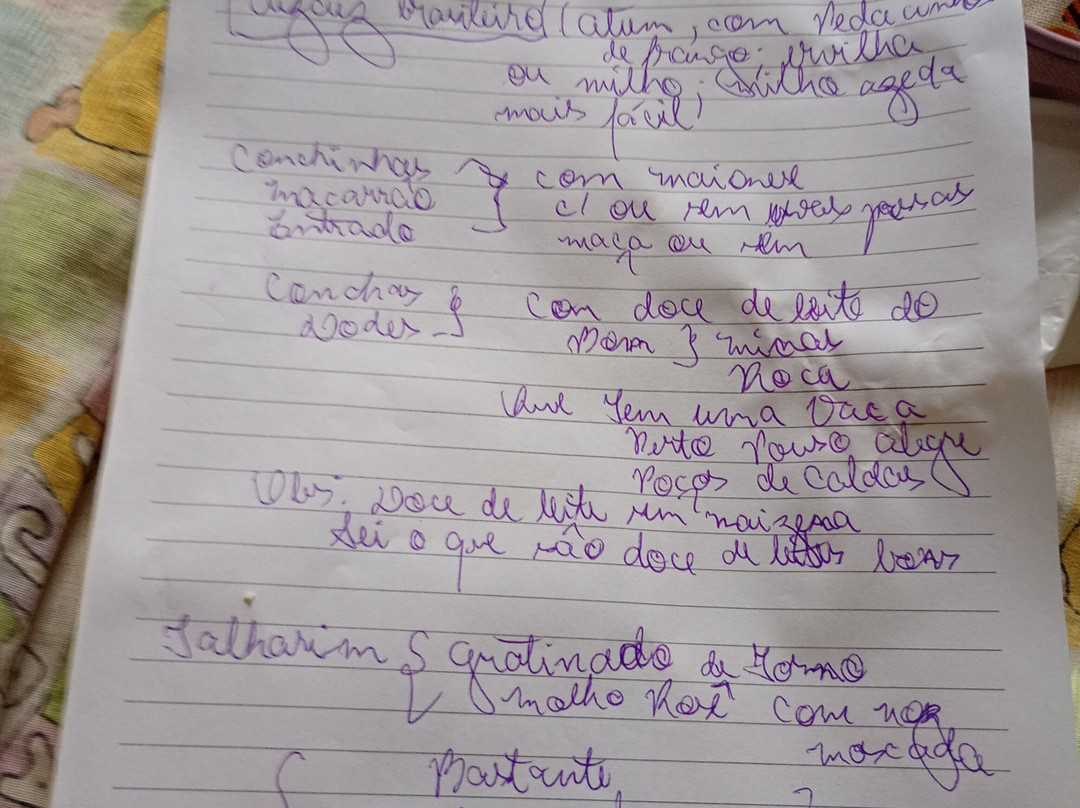 brasileiro (atum, com pedacinhos
de frango, ervilha
ou milho; (milho ageda
mais fácil)
Conchinhas } com maionese
macarrão c/ ou sem uvas passas
Entrada maça ou sem
Conchas } com doce de leite do
Doces Bom } minas
Roça
Que tem uma Vaca
Perto Pouso alegre
Poços de Caldas
Obs: Doce de leite sem maizena
Sei o que são doce de leites bons
Talharim { gratinado de Forno
molho Rosê com noz
moscada
Bastante